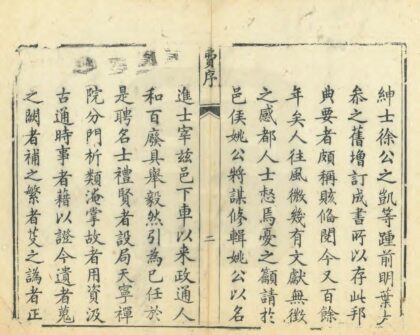 紳士徐公之凱等踵前明葉大
叅之舊增訂成書所以存此邦
典要者頗稱賅備閱今又百餘
年矣人往風微幾有文獻無徵
之感都人士惄焉憂之籲請於
邑侯姚公將謀修輯姚公以名
序
二
進士宰茲邑下車以來政通人
和百廢具舉毅然引為己任於
是聘名士禮賢者設局天寧禪
院分門析類淹掌故者用資汲
古通時事者藉以證今遺者蒐
之闕者補之繁者芟之譌者正